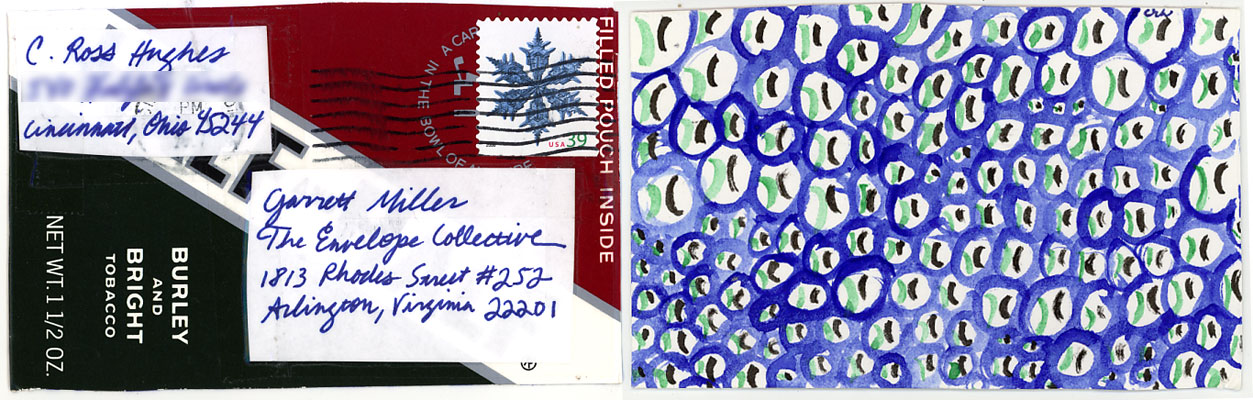 C. Ross Hughes
Cincinnati, Ohio 45244
PM
IN A CAR
IN THE BOWL OF
USA 39
FILLED POUCH INSIDE
Garrett Miller
The Envelope Collective
1813 Rhodes Street #252
Arlington, Virginia 22201
BURLEY
AND
BRIGHT
TOBACCO
NET WT. 1 1/2 OZ.